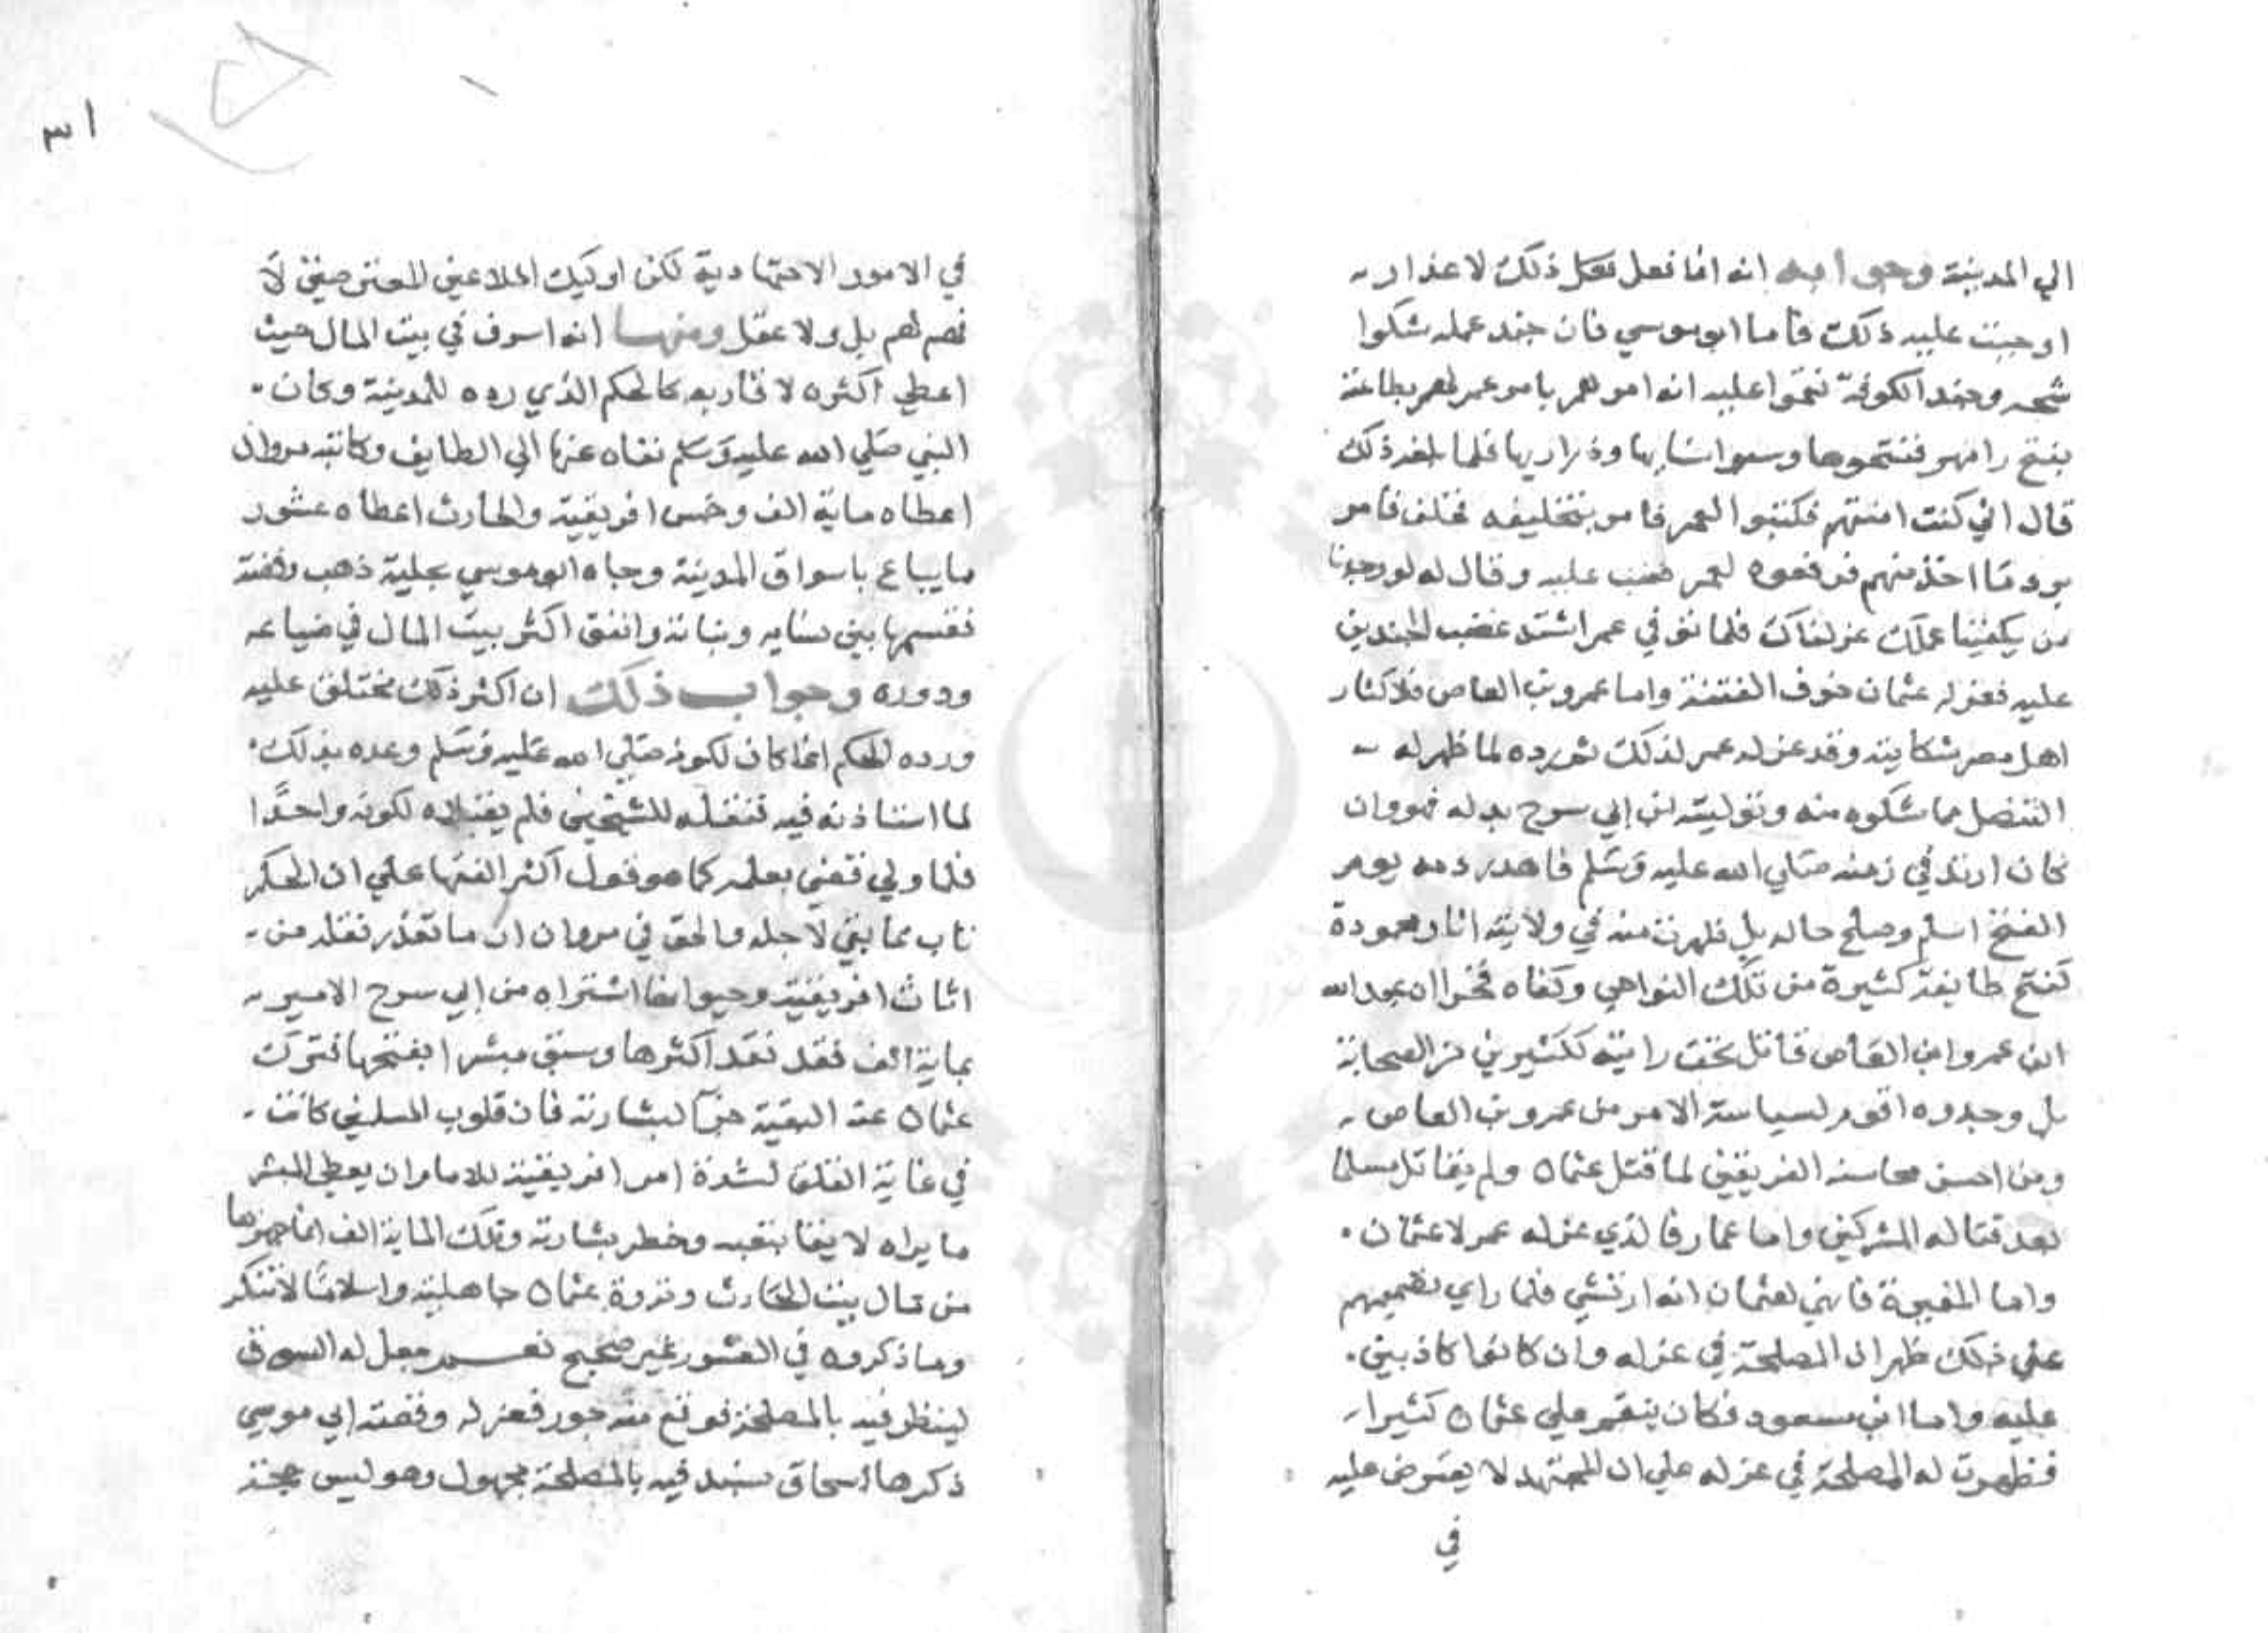 الي المدينة وجوابه انه انما فعل ذلك لاعذار
اوجبت عليه ذلك فاما ابوموسي فان جند عمله شكوا
شحه وجند الكوفة نقموا عليه انه امرهم بامر عمر لهم بطاعته
بفتح رامهرمز ففتحوها وسبوا نسايها وذراريها فلما بلغه ذلك
قال اني كنت امنتهم فكتبوا لعمر فامر بتحليفه فحلف فامر
برد ما اخذ منهم فرفعوه لعمر فعتب عليه وقال له لو وجدنا
من يكفينا عملك عزلناك فلما توفي عمر اشتد غضب الجندين
عليه فعزله عثمان خوف الفتنة واما عمرو بن العاص فلاكثار
اهل مصر شكايته وقد عزله عمر لذلك ثم رده لما ظهر له
التنصل مما شكوه منه وتوليته ابن ابي سرح بدله فهو وان
كان ارتد في زمنه صلي الله عليه وسلم فاهدر دمه يوم
الفتح اسلم وصلح حاله بل ظهرت منه في ولايته اثار محمودة
كفتح طايفة كثيرة من تلك النواحي وكفاه فخرا ان عبد الله
ابن عمرو ابن العاص قاتل تحت رايته ككثيرين من الصحابة
بل وجدوه اقوم لسياسة الامر من عمرو بن العاص
ومن احسن محاسنه الفريقين لما قتل عثمان ولم يقاتل مسلما
بعد قتاله المشركين واما عمار فالذي عزله عمر لا عثمان
واما المغيرة فانهي لعثمان انه ارتشي فلما راي تصميمهم
علي ذلك ظهر ان المصلحة في عزله وان كانوا كاذبين
عليه واما ابن مسعود فكان ينقم علي عثمان كثيرا
فظهرت له المصلحة في عزله علي ان المجتهد لا يعترض عليه
في
٣١
في الامور الاجتهادية لكن اوليك الملاعين المعترضين لا
فهم لهم بل ولا عقل ومنها انه اسرف في بيت المال حيث
اعطي اكثره لاقاربه كالحكم الذي رده للمدينة وكان
النبي صلي الله عليه وسلم نفاه عنها الي الطايف وكاتبه مروان
اعطاه ماية الف وخمس افريقية والحارث اعطاه عشور
ما يباع باسواق المدينة وجاه ابوموسي بحلية ذهب وفضة
فقسمها بين نسايه وبناته وانفق اكثر بيت المال في ضياعه
ودوره وجواب ذلك ان اكثر ذلك مختلق عليه
ورده الحكم انما كان لكونه صلي الله عليه وسلم وعده بذلك
لما استاذنه فيه فنقله للشيخين فلم يقبلاه لكونه واحدًا
فلما ولي قضي بعلمه كما هو قول اكثر الفقها علي ان الحكم
تاب مما نفي لاجله والحق في مروان ان ما تعذر نقله من
اثاث افريقية وحيوانها اشتراه من ابي سرح الامير
بماية الف فنقد اكثرها وسبق مبشرا بفتحها فترك
عثمان عنه البقية جزآ لبشارته فان قلوب المسلمين كانت
في غاية القلق لشدة امر افريقية للامام ان يعطي المبشر
ما يراه لايقا بتعبه وخطر بشارته وتلك الماية الف انما جهزها
من مال بيت الحارث وثروة عثمان جاهلية واسلامًا لا تنكر
وما ذكروه في العشور غير صحيح نعم جعل له السوق
لينظر فيه بالمصلحة فوقع منه جور فعزله وقصة ابي موسي
ذكرها اسحاق بسند فيه بالمصلحة مجهول وهو ليس بحجة